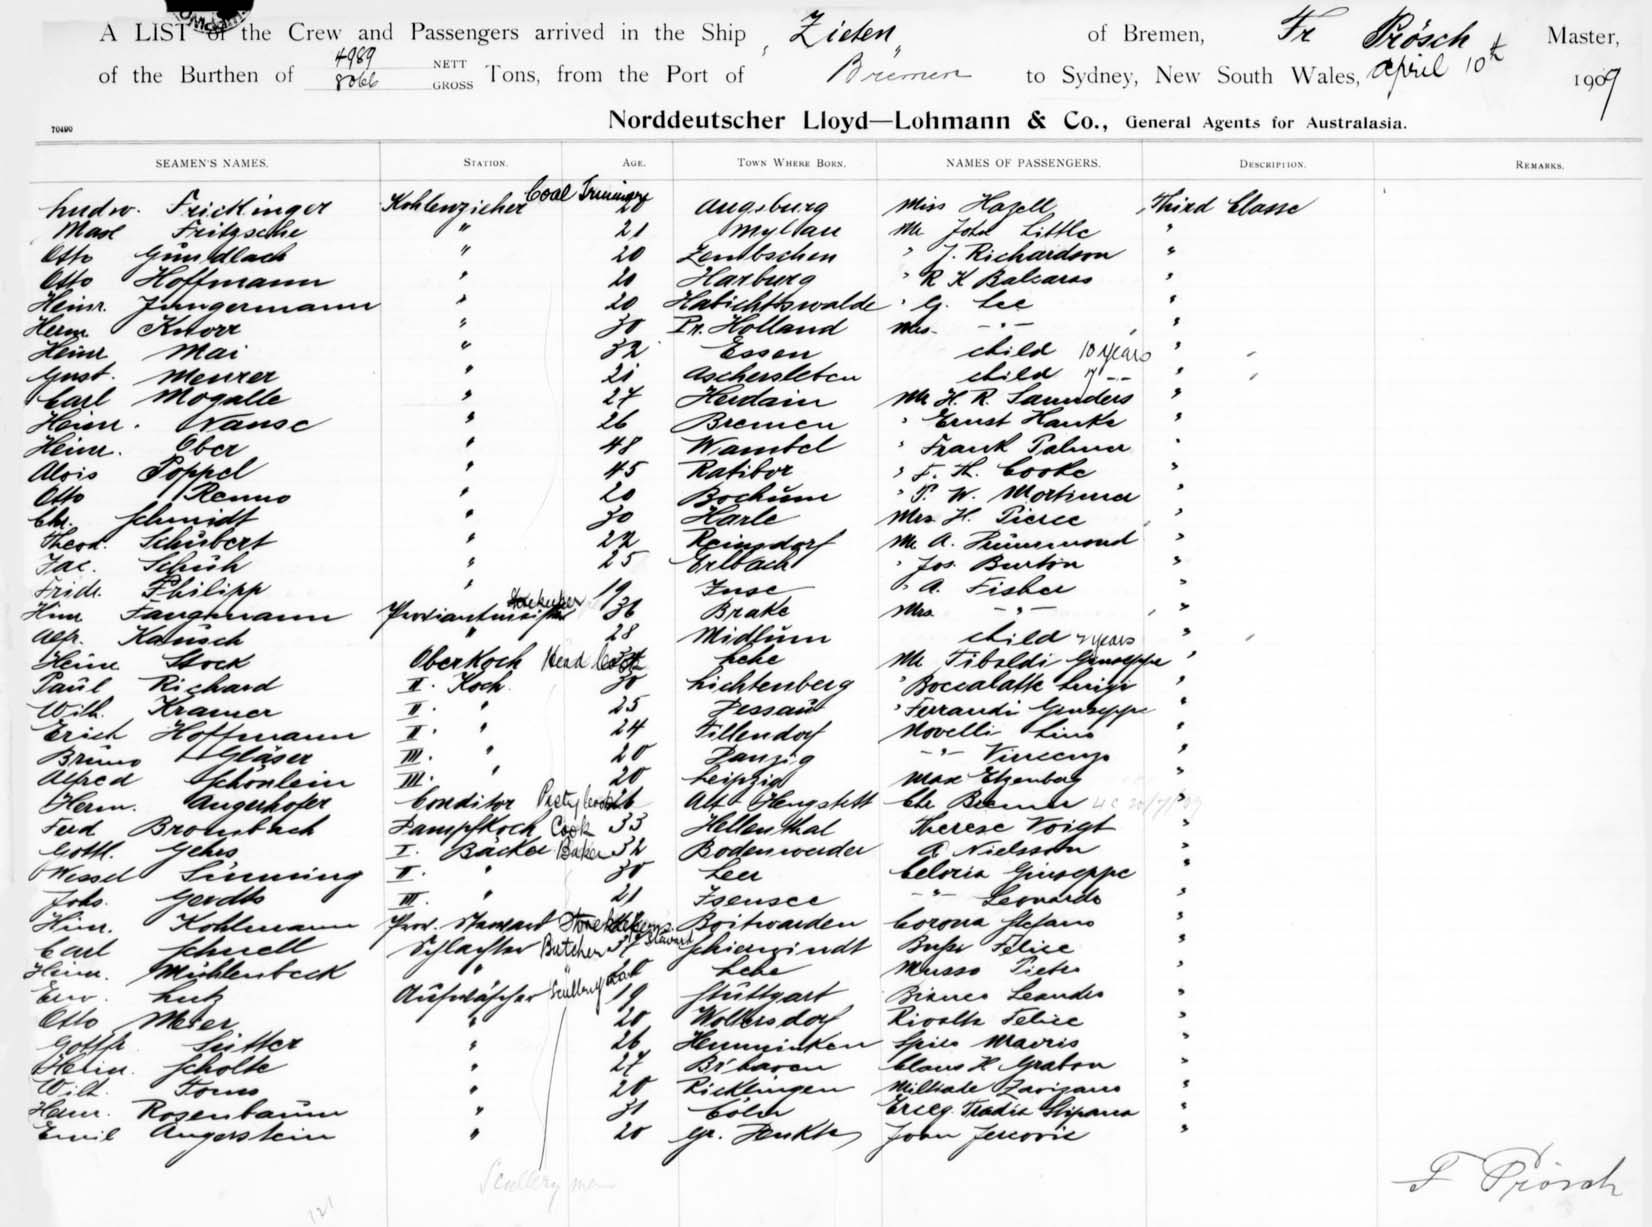 A LIST of the Crew and Passengers arrived in the Ship "Zieten" of Bremen, Fr Prösch Master,
of the Burthen of 4989 NETT 8066 GROSS Tons, from the Port of Bremen to Sydney, New South Wales, April 10th 1909
70490 Norddeutscher Lloyd—Lohmann & Co., General Agents for Australasia.
SEAMEN'S NAMES. STATION. AGE. TOWN WHERE BORN. NAMES OF PASSENGERS. DESCRIPTION. REMARKS.
Ludw. Frickinger Kohlenzieher Coal Trimmers 20 Augsburg Miss Hazell Third Classe
Max Fritzsche " 21 Mylau Mr John Little "
Otto Gundlach " 20 Zembschen " J. Richardson "
Otto Hoffmann " 20 Harburg " R K Balcaras "
Heinr. Jungermann " 20 Habichtswalde " G. Lee "
Herm Knorr " 30 Pr. Holland Mrs - " - "
Heinr Mai " 32 Essen child 10 years "
Gust. Meurer " 21 Aschersleben child 7 -- "
Carl Mogalle " 27 Herdain Mr H. R. Saunders "
Heinr. Nanse " 26 Bremen " Ernst Hanke "
Heinr. Ober " 48 Wambel " Frank Palmer "
Alois Poppel " 45 Ratibor " F. H. Cooke "
Otto Renno " 20 Bochum " P. W. Mortimer "
Chr. Schmidt " 30 Harle Mrs H. Pierce "
Theod. Schubert " 22 Reinsdorf Mr A. "
Jac. Schuh " 25 Erlbach " Jos. Burton "
Friedr. Philipp " 19 " A. Fisher "
Hinr Fangmann Proviantmeister Storekeeper 36 Brake Mrs - " - "
Alfr. Kausch " 28 Midlum child 2 years "
Heinr Stock Oberkoch Head Cook Lehe Mr Tibaldi Giuseppe "
Paul Richard II. Koch 30 Lichtenberg " Boccalatte Luigi "
Wilh. Kramer II. " 25 Dessau " Ferrandi Giuseppe "
Erich Hoffmann II. " 24 Tillendorf Novelli Lino "
Bruno Gläser III. " 20 Danzig - " - Vincenzo "
Alfred Schönlein III. " 20 Leipzig Max Etzenberg "
Herm. Angerhofer Conditor Pastry Cook 26 Alt-Hengstett Chr Bremer "
Ferd Brombach Dampfkoch Cook 33 Hellenthal Therese Voigt "
Gottl. Gehrs I. Bäcker Baker 32 Bodenwerder A Nielsson "
Wessel Sinning II. " 30 Leer Celoria Giuseppe "
Johs. Gerdts III. " 21 Isensee - " - Leonardo "
Hinr. Kohlmann Prov. Steward Storekeepers Steward Boitwarden Corona Stefano "
Carl Schnell Schlachter Butcher 37 Felice "
Heinr. Mühlenbeck " 20 Lehe Musso Pietro "
Erw. Lutz Aufwäscher Scullery man 19 Stuttgart Bianco Leandro "
Otto Meier " 20 Woltersdorf Rivolta Felice "
Gottfr. Sutter " 26 Spiro "
Heinr. Scholte " 27 B'haven Claus H Grabon "
Wilh. Toms " 20 Ricklingen "
Heinr. Rosenbaum " 31 Cöln "
Emil Angerstein " 20 John Jercovic "
Scullery men
121
F Prösch